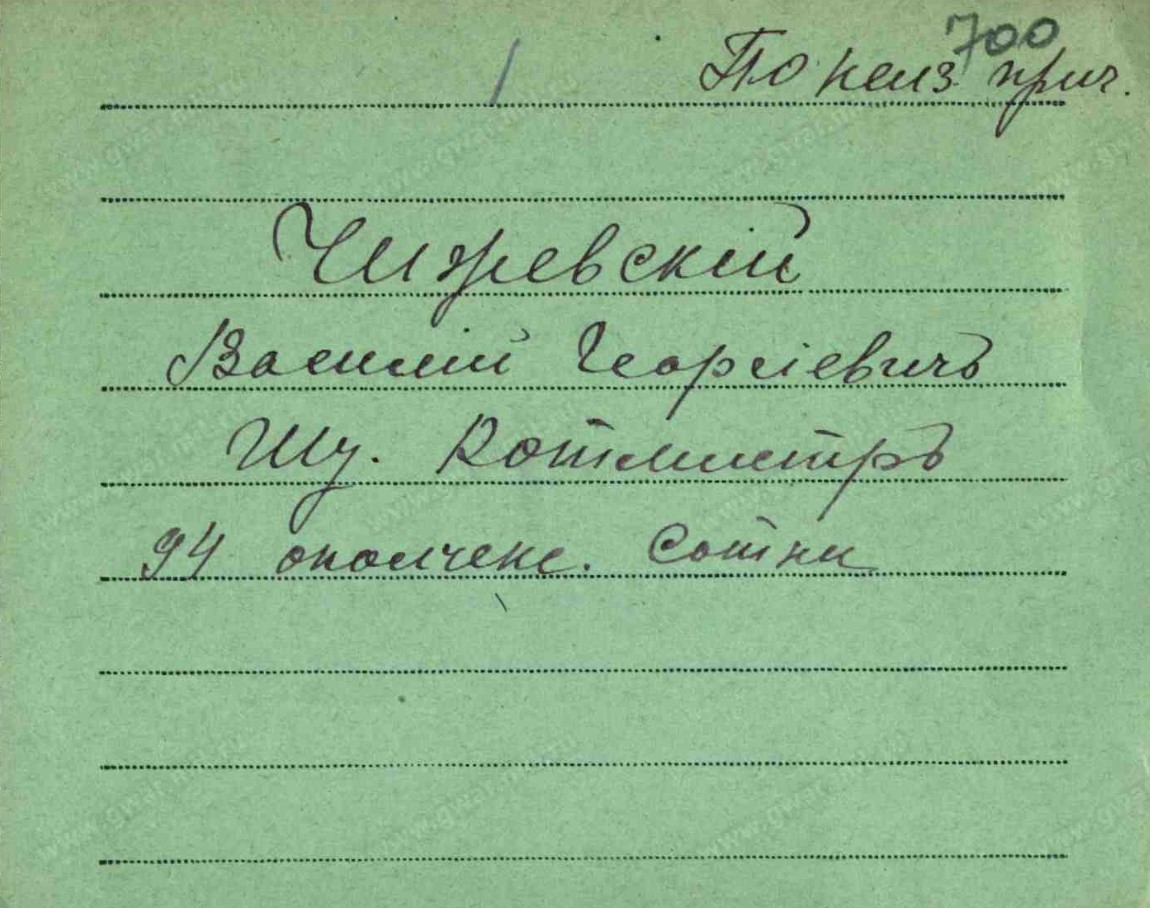 700
По неиз прич.
Чижевскій
Василій Георгіевичъ
Шт. Ротмистръ
94 ополченс. Сотни
www.gwar.mil.ru